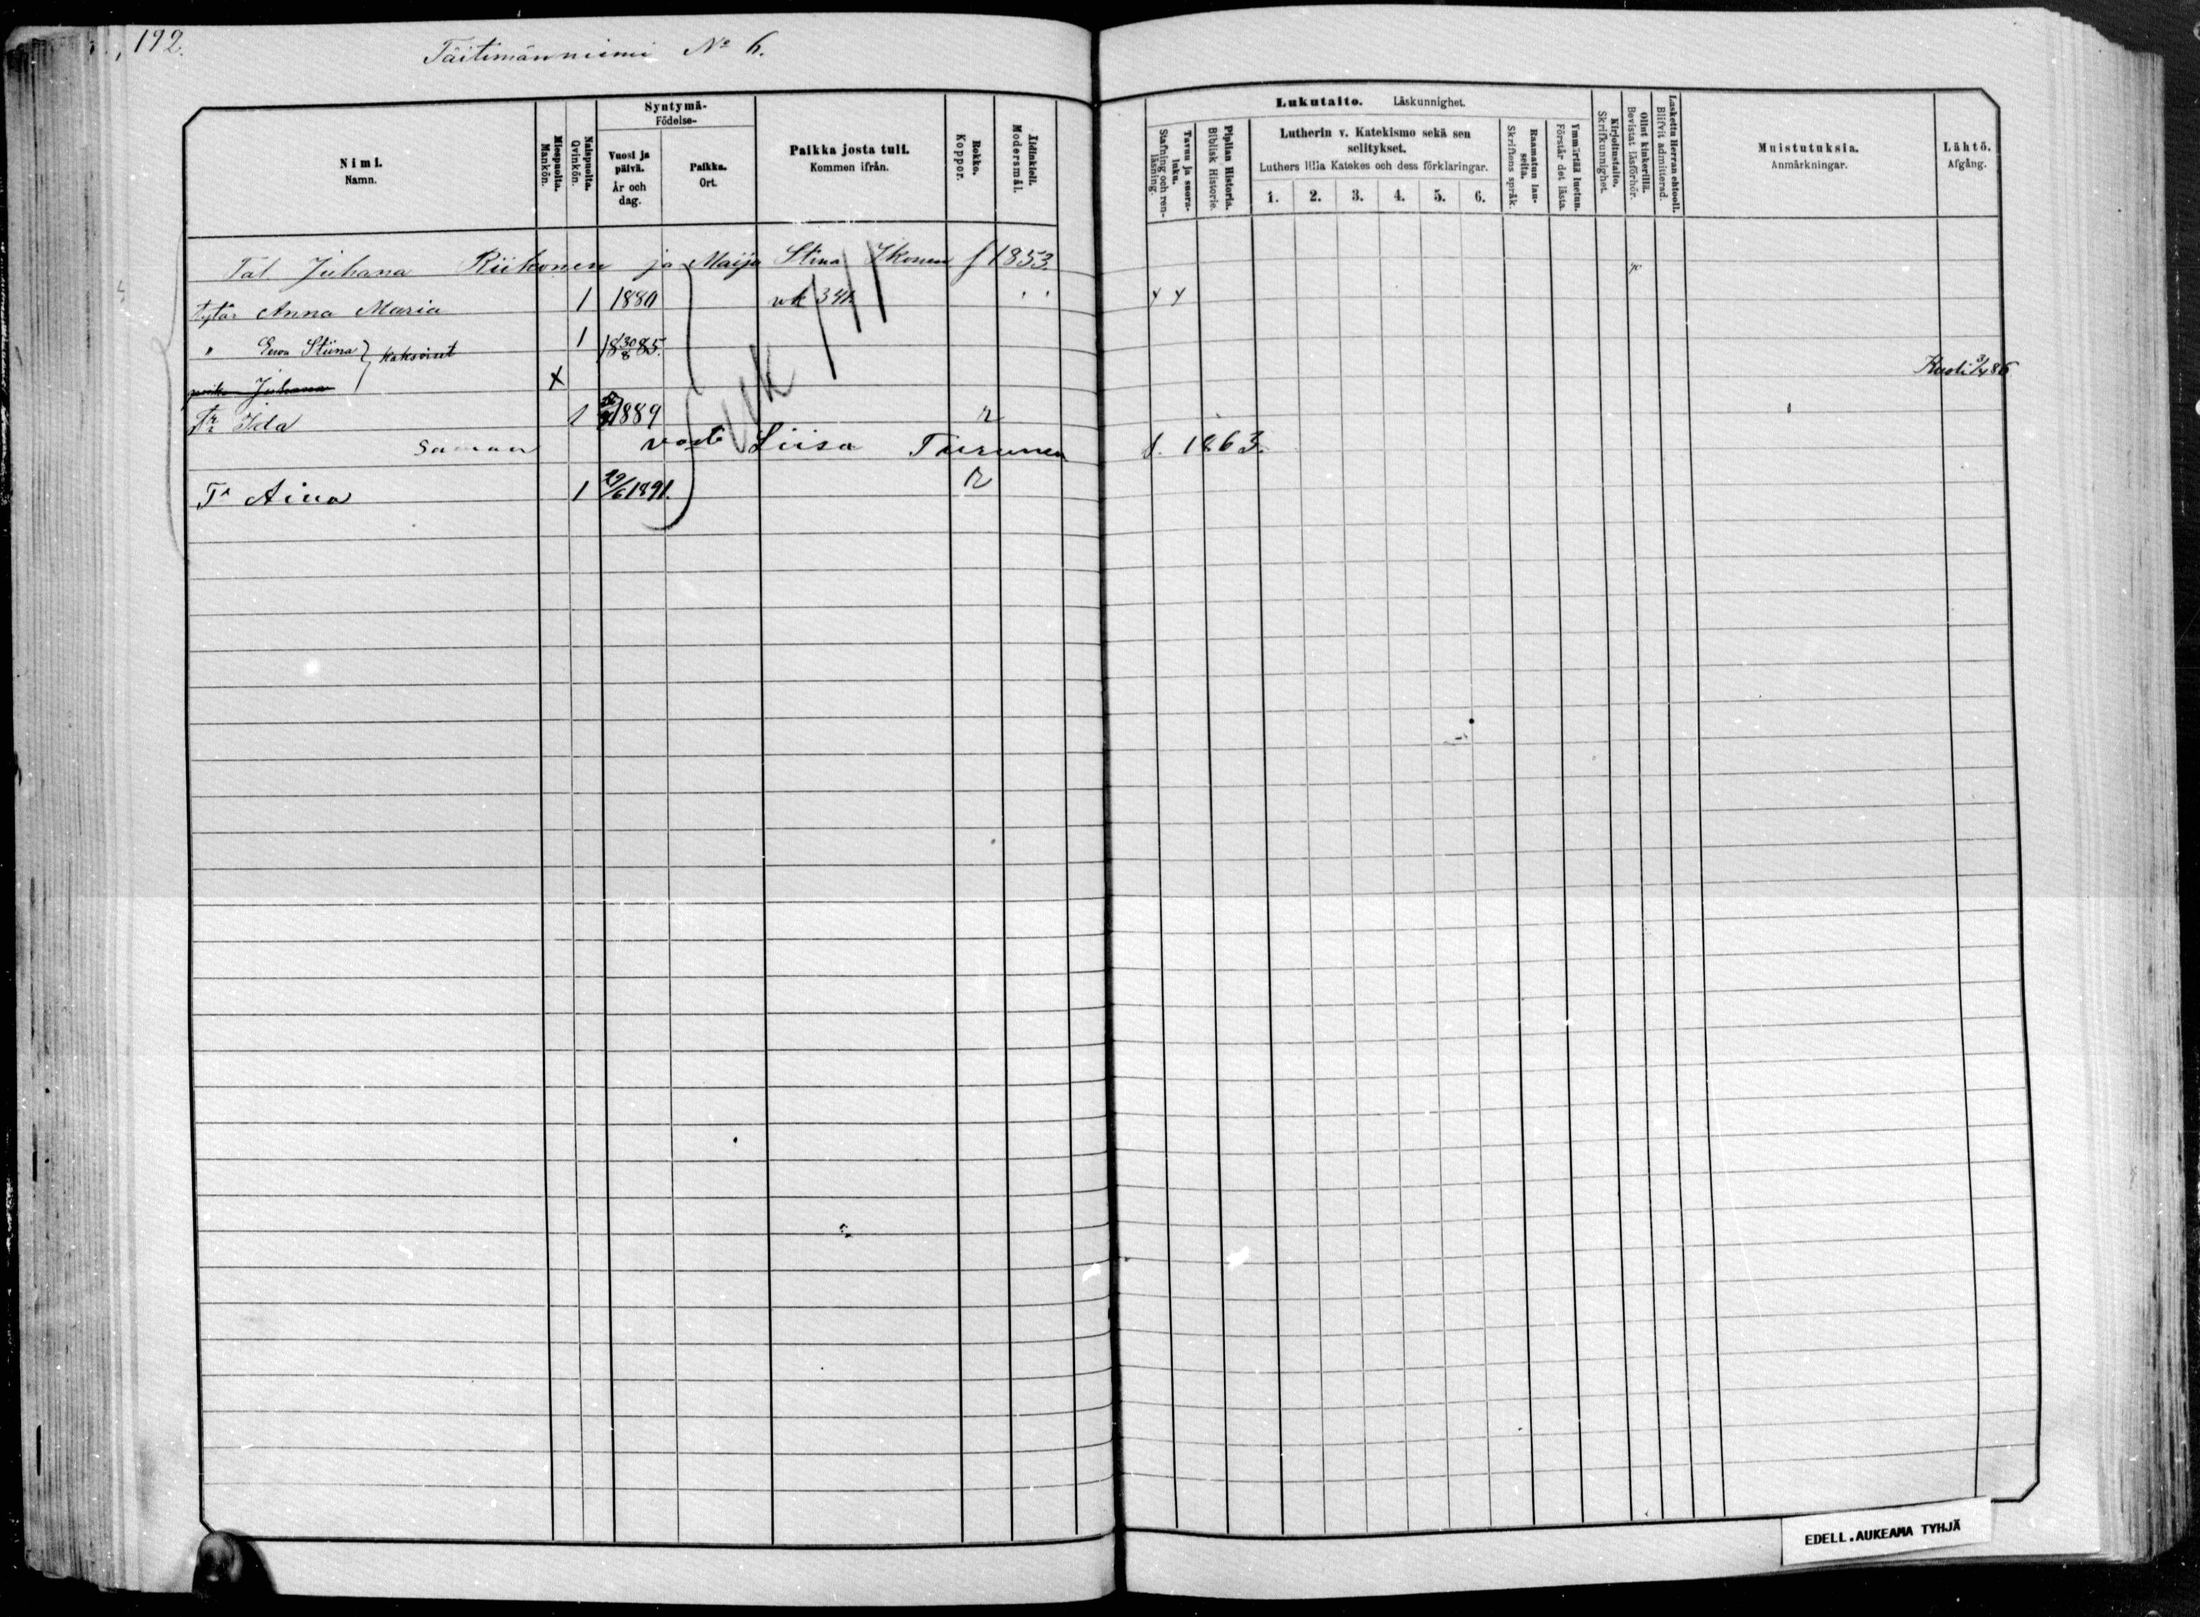 192.
Täitimänniemi No 6.
Nimi. Namn.
Miespuolta. Mankön.
Naispuolta. Qvinkön.
Syntymä- Födelse-
Vuosi ja päivä. År och dag.
Paikka. Ort.
Paikka josta tuli. Kommen ifrån.
Rokko. Koppor.
Äidinkieli. Modersmål.
Lukutaito. Läskunnighet.
Tavuu ja suora-luku. Stafning och ren-läsning.
Piplian Historia. Biblisk Historie.
Lutherin v. Katekismo sekä sen selitykset.
Luthers lilla Katekes och dess förklaringar.
1. 2. 3. 4. 5. 6.
Raamatun lau-seita. Skriftens språk.
Ymmärtää luetun. Förstår det lästa.
Kirjoitustaito. Skrifkunnighet.
Ollut kinkerillä. Bevistat läsförhör.
Laskettu Herran ehtooll. Blifvit admitterad.
Muistutuksia. Anmärkningar.
Lähtö. Afgång.
Tal. Juhana Riikonen ja Maija Stina Ikonen f 1853.
tytär Anna Maria 1 1880 vk 341.
" Eewa Stiina 1 18 30/8 85.
kaksoiset
poika Juhana x Kuoli 3/4 86
Tr Ida 1 1889 r
Saman vaste Liisa Turunen s. 1863.
Tr Aina 1 29/6 1891. r
EDELL.AUKEAMA TYHJÄ